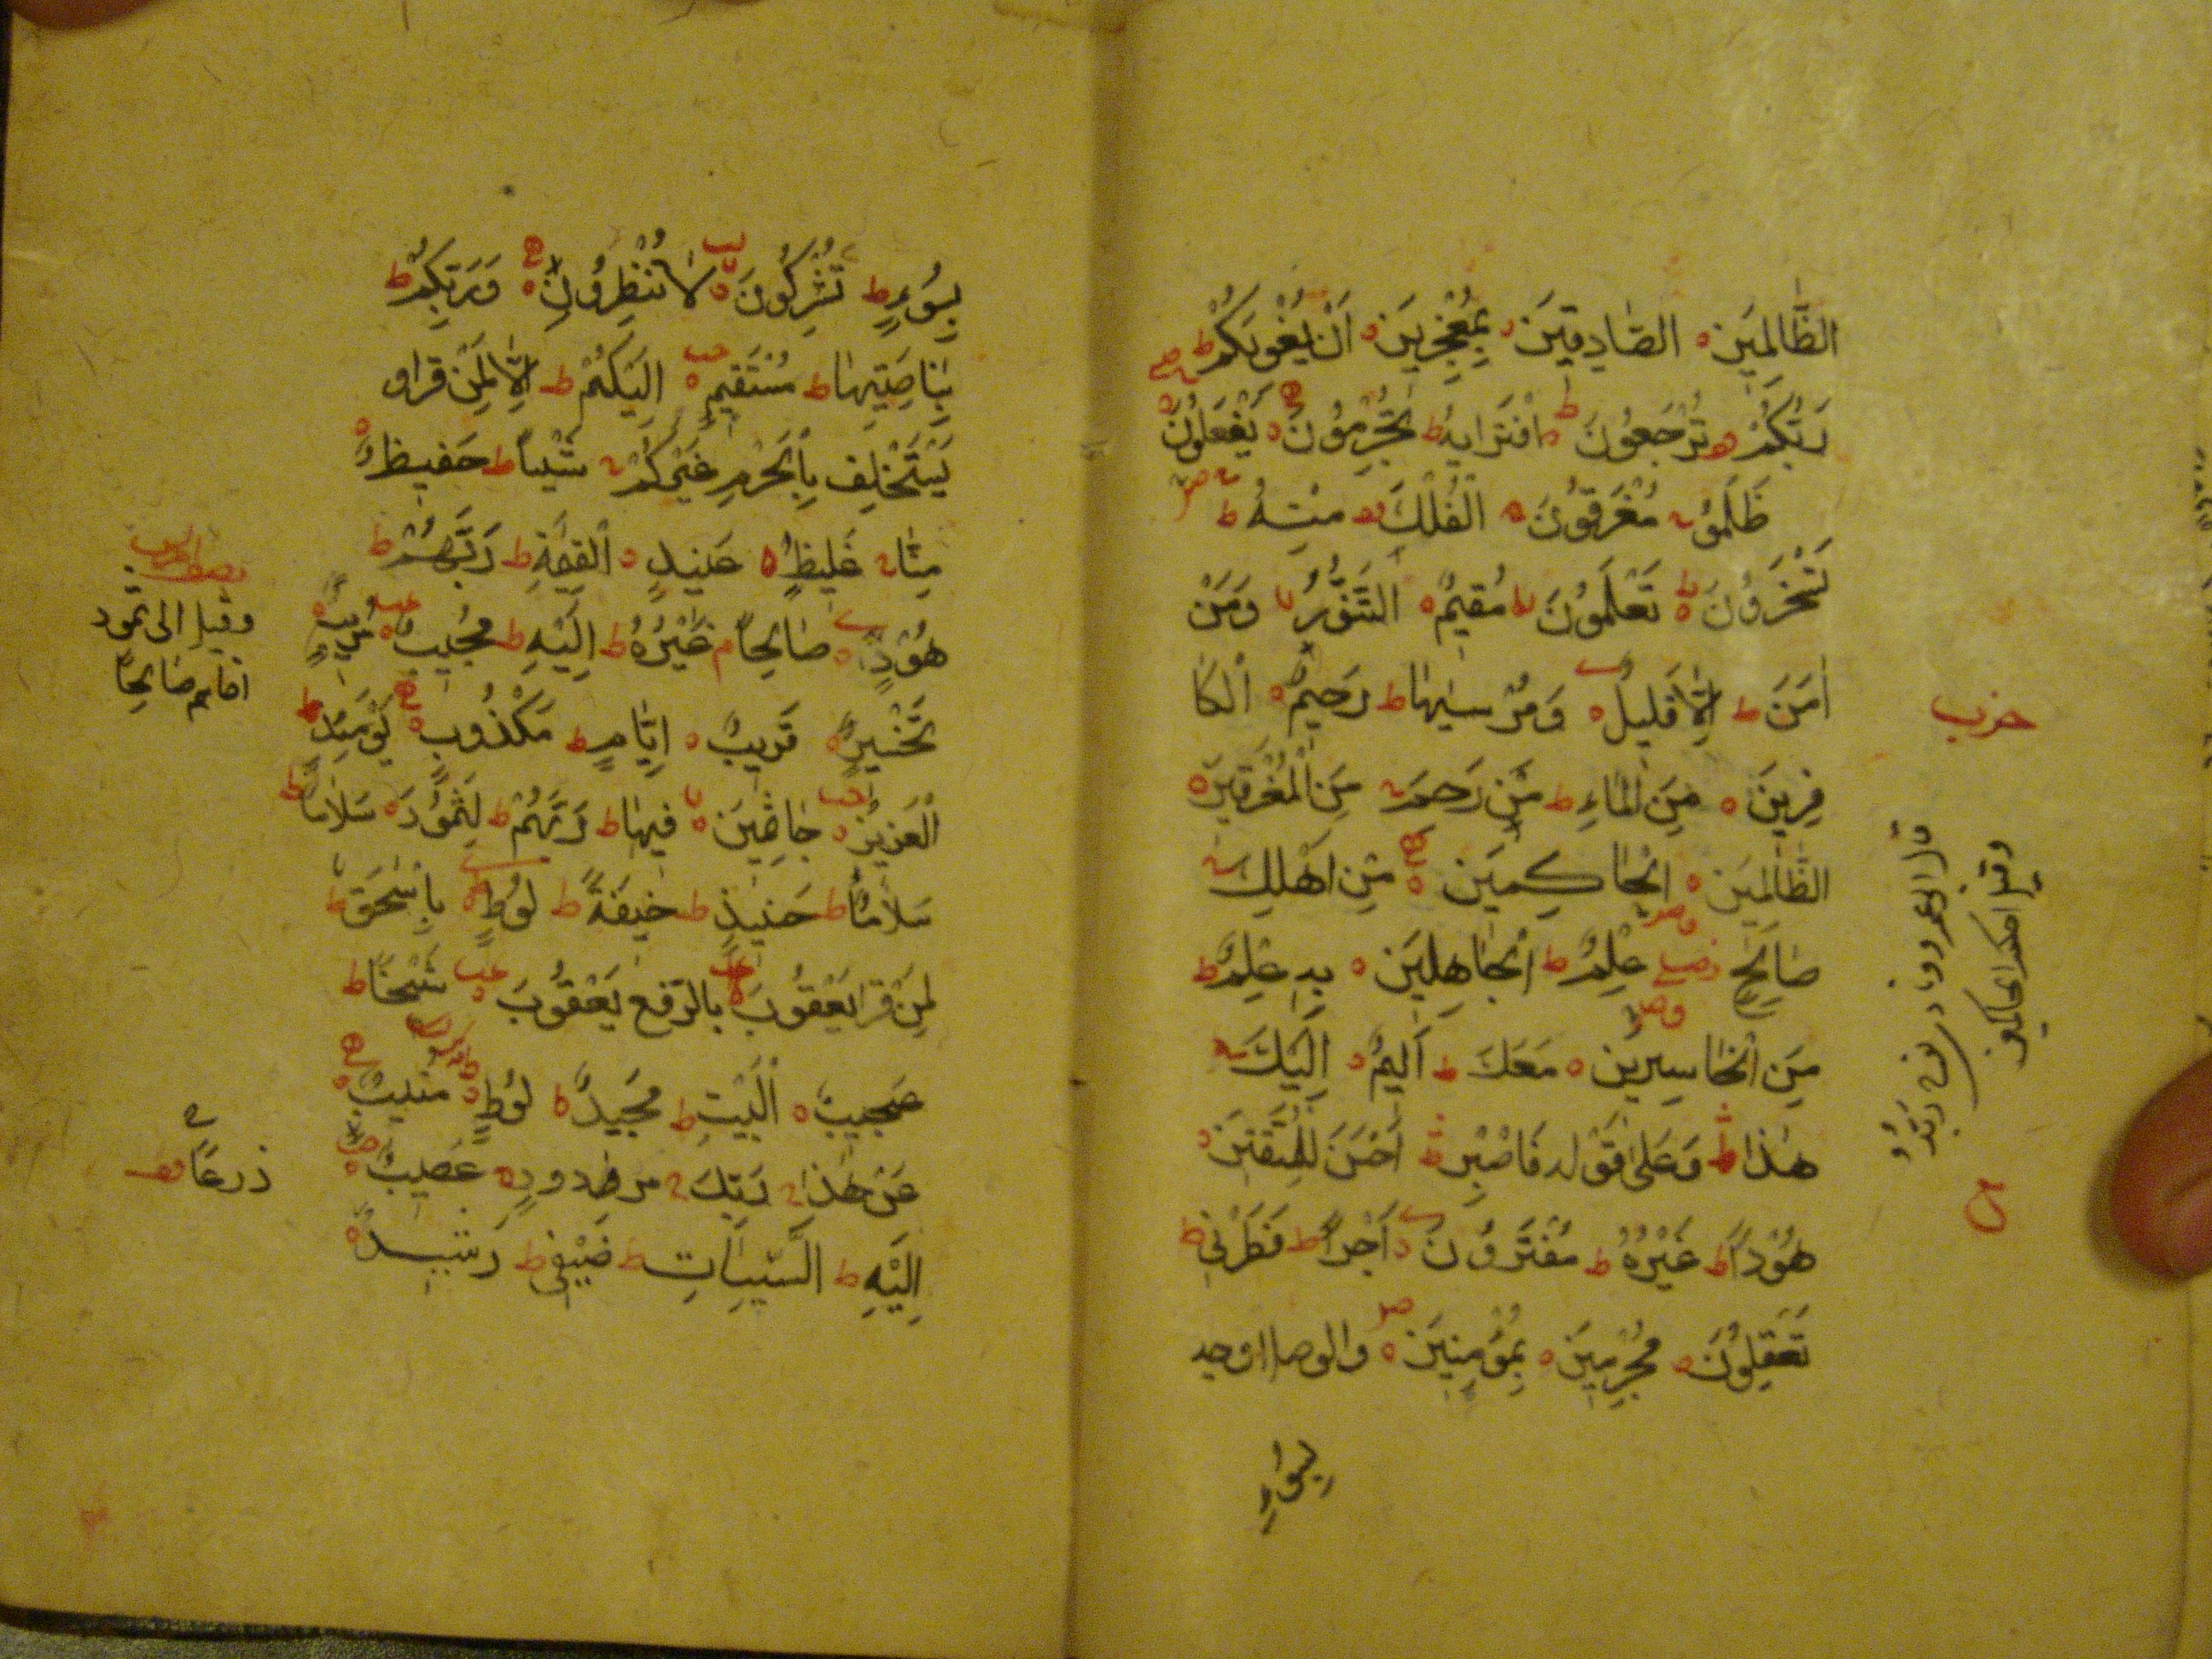 الظَّالِمِينَ ه الصَّادِقِينَ ه بِمُعْجِزِينَ ه اَنْ يُغْوِيَكُمْ ط
رَبُّكُمْ تُرْجَعُونَ ط افْتَرَايهُ ط تُجْرِمُونَ ه يَفْعَلُونَ ه
ظَلَمُوا مُغْرَقُونَ ه الْفُلْكَ مِنْهُ ط
تَسْخَرُونَ ط تَعْلَمُونَ لا مُقِيمٌ ه التَّنُّورُ لا وَمَنْ
اٰمَنَ ط اِلَّا قَلِيلٌ ه وَمُرْسٰيهَا ط رَحِيمٌ ه الْكَا
فِرِينَ ه مِنَ الْمَاءِ ط مَنْ رَحِمَ مِنَ الْمُغْرَقِينَ ه
الظَّالِمِينَ ه الْحَاكِمِينَ ه مِنْ اَهْلِكَ
صَالِحٍ عِلْمٌ ط الْجَاهِلِينَ ه بِهِ عِلْمٌ ط
مِنَ الْخَاسِرِينَ ه مَعَكَ ط اَلِيمٌ ه اِلَيْكَ
هٰذَا ط وَعَلٰى قَوْلِه فَاصْبِرْ ط اَحْسَنَ لِلْمُتَّقِينَ ه
هُوْدًا ط غَيْرُهُ ط مُفْتَرُونَ ه اَجْرًا ط فَطَرَنِي ط
تَعْقِلُونَ ه مُجْرِمِينَ ه بِمُؤْمِنِينَ ه والوصل اوجه
بِسُوءٍ
حزب
بِسُوءٍ ط تُشْرِكُونَ ه لَا تُنْظِرُونِ ه وَرَبِّكُمْ ط
بِنَاصِيَتِهَا ط مُسْتَقِيمٍ ه اِلَيْكُمْ ط اِلَّا لِمَنْ قرا و
يَسْتَخْلِف بِالْجَزْمِ غَيْرَكُمْ شَيْئًا ط حَفِيظٌ ه
مِنَّا غَلِيظٍ ه عَنِيدٍ ه الْقِيٰمَةِ ط رَبَّهُمْ ط
هُوْدٍ ه صَالِحًا م غَيْرُهُ ط اِلَيْهِ ط مُجِيبٌ ه مُرِيبٍ ه
تَخْسِيرٍ ه قَرِيبٌ ه اَيَّامٍ ط مَكْذُوبٍ ه يَوْمَئِذٍ ط
الْعَزِيزُ ه جَاثِمِينَ لا فِيهَا ط رَبَّهُمْ ط لِثَمُوْدَ ه سَلَامًا ط
سَلَامًا ط حَنِيذٍ ط خِيفَةً ط لُوْطٍ ط بِاِسْحٰقَ ط
لِمَنْ قرا يَعْقُوبُ بالرّفع يَعْقُوبَ شَيْخًا ط
عَجِيبٌ ه الْبَيْتِ ط مَجِيدٌ ه لُوْطٍ ه مُنِيبٌ ه
عَنْ هٰذَا رَبِّكَ مردودٍ ه عَصِيبٌ ه
اِلَيْهِ ط السَّيِّئَاتِ ط ضَيْفِي ط رَشِيدٌ ه
وقيل الى ثمود
اخاهم صَالِحًا
ذرعًا